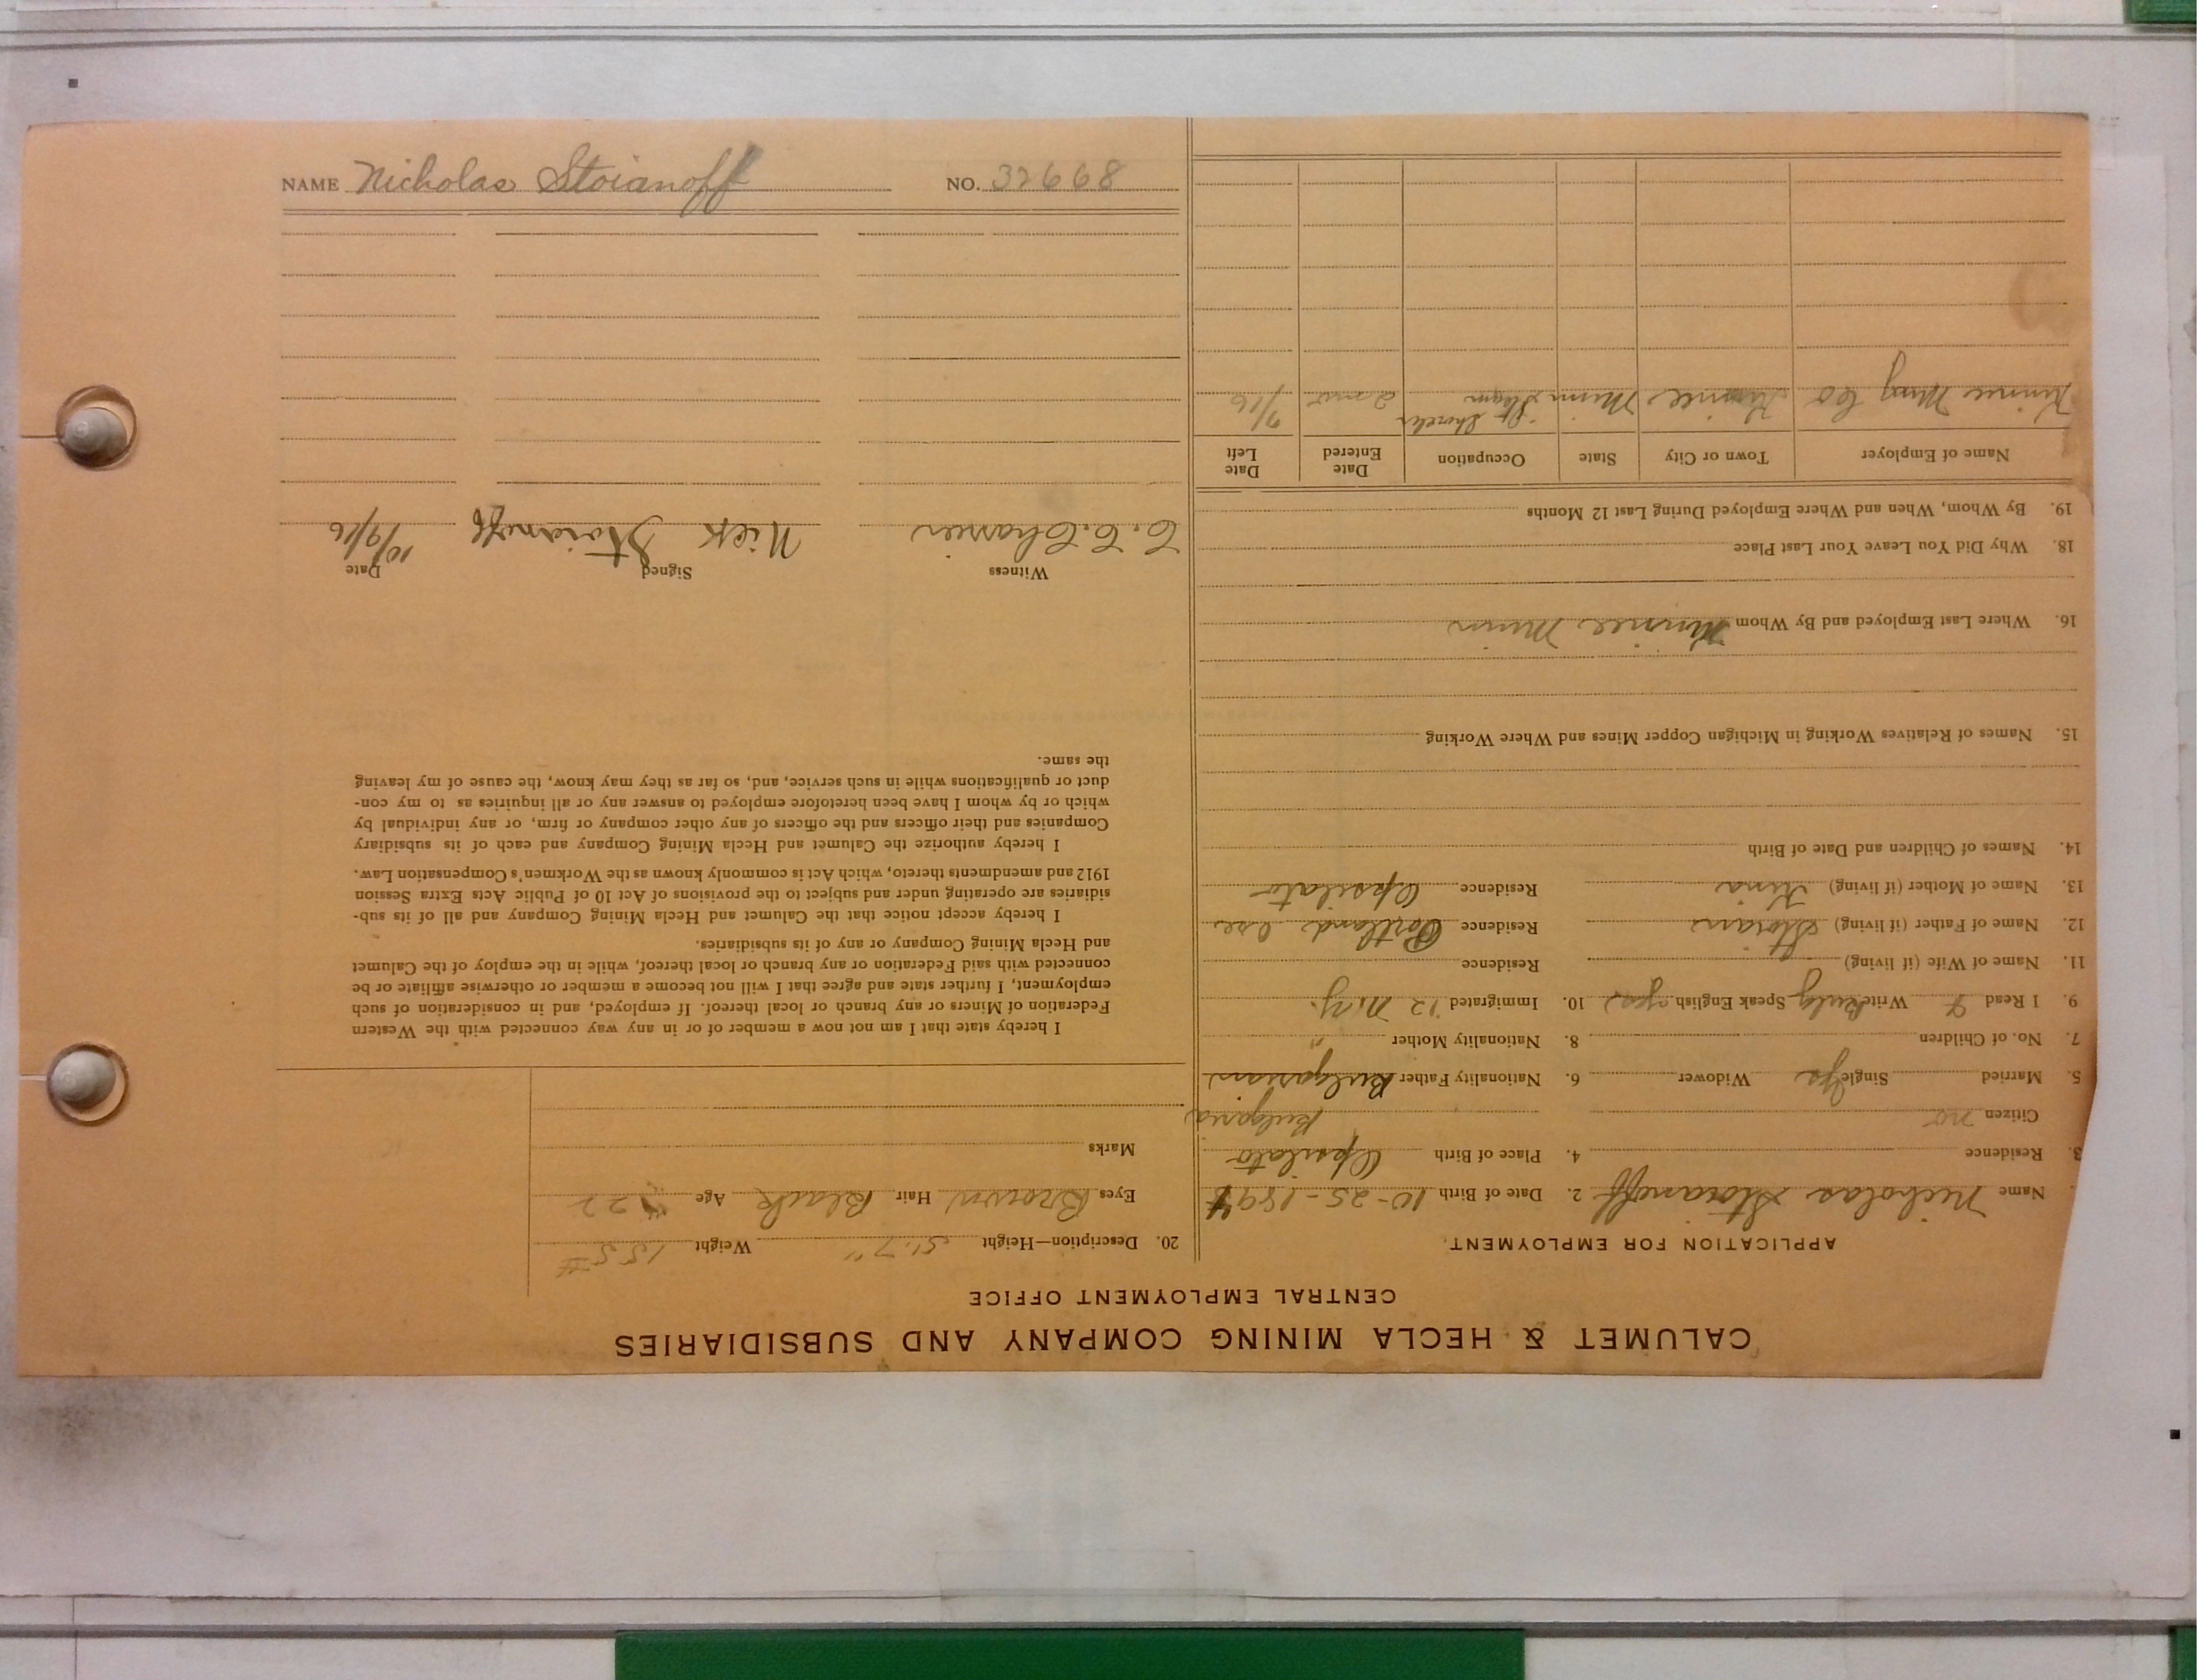 NAME Nicholas Stoianoff NO. 32668
CALUMET & HECLA MINING COMPANY AND SUBSIDIARIES
CENTRAL EMPLOYMENT OFFICE
APPLICATION FOR EMPLOYMENT.
Name Nicholas Stoianoff 2. Date of Birth 10-25-1894
3. Residence 4. Place of Birth Apsilato
Citizen no Bulgaria
5. Married Single yes Widower 6. Nationality Father Bulgarian
7. No. of Children 8. Nationality Mother "
9. I Read & Write Bulg Speak English yes 10. Immigrated '12 N.Y.
11. Name of Wife (if living) Residence
12. Name of Father (if living) Stoian Residence Portland Ore
13. Name of Mother (if living) Kina Residence Apsilato
14. Names of Children and Date of Birth
15. Names of Relatives Working in Michigan Copper Mines and Where Working
16. Where Last Employed and By Whom Kinnie Minn
18. Why Did You Leave Your Last Place
19. By Whom, When and Where Employed During Last 12 Months
Name of Employer Town or City State Occupation Date Entered Date Left
Kinnie Mung Co Kinnie Minn St Shoveler Steam 2 mos 9/16
20. Description—Height 5'.7" Weight 155#
Eyes Brown Hair Black Age 22
Marks
I hereby state that I am not now a member of or in any way connected with the Western
Federation of Miners or any branch or local thereof. If employed, and in consideration of such
employment, I further state and agree that I will not become a member or otherwise affiliate or be
connected with said Federation or any branch or local thereof, while in the employ of the Calumet
and Hecla Mining Company or any of its subsidiaries.
I hereby accept notice that the Calumet and Hecla Mining Company and all of its sub-
sidiaries are operating under and subject to the provisions of Act 10 of Public Acts Extra Session
1912 and amendments thereto, which Act is commonly known as the Workmen's Compensation Law.
I hereby authorize the Calumet and Hecla Mining Company and each of its subsidiary
Companies and their officers and the officers of any other company or firm, or any individual by
which or by whom I have been heretofore employed to answer any or all inquiries as to my con-
duct or qualifications while in such service, and, so far as they may know, the cause of my leaving
the same.
Witness Signed Date
C. C. Chasser Nick Stoianoff 10/9/16